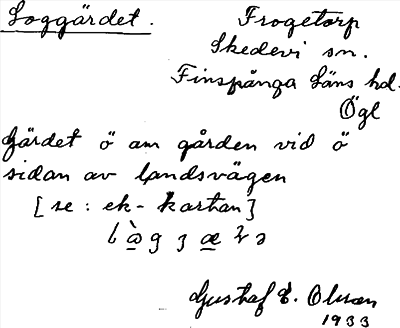 Loggärdet.
Frogetorp
Skedevi sn.
Finspånga Läns hd.
Ögl
Gärdet ö am gården vid ö
sidan av landsvägen
[se: ek-kartan]
Gustaf E. Olsson
1933